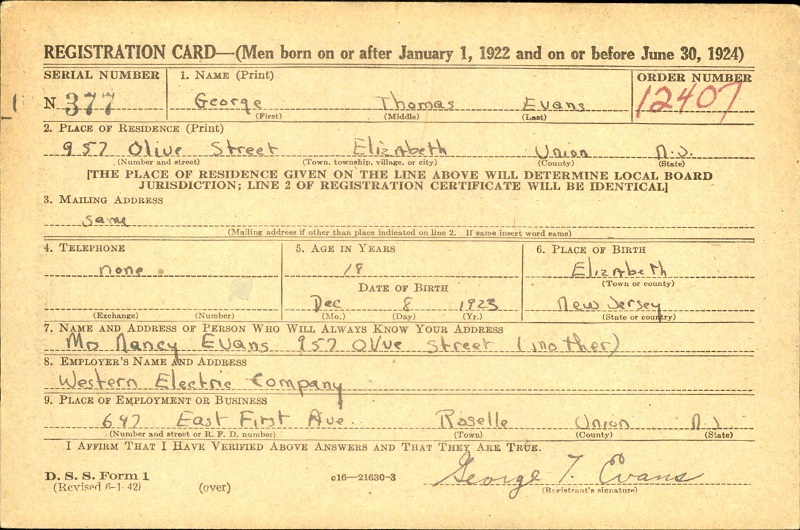 REGISTRATION CARD—(Men born on or after January 1, 1922 and on or before June 30, 1924)
SERIAL NUMBER 1. NAME (Print) ORDER NUMBER
N 377 George Thomas Evans 12407
(First) (Middle) (Last)
2. PLACE OF RESIDENCE (Print)
957 Olive Street Elizabeth Union N.J.
(Number and street) (Town, township, village, or city) (County) (State)
[THE PLACE OF RESIDENCE GIVEN ON THE LINE ABOVE WILL DETERMINE LOCAL BOARD
JURISDICTION; LINE 2 OF REGISTRATION CERTIFICATE WILL BE IDENTICAL]
3. MAILING ADDRESS
same
(Mailing address if other than place indicated on line 2. If same insert word same)
4. TELEPHONE 5. AGE IN YEARS 6. PLACE OF BIRTH
none 18 Elizabeth
(Town or county)
DATE OF BIRTH
Dec 8 1923 New Jersey
(Exchange) (Number) (Mo.) (Day) (Yr.) (State or country)
7. NAME AND ADDRESS OF PERSON WHO WILL ALWAYS KNOW YOUR ADDRESS
Mrs Nancy Evans 957 Olive street (mother)
8. EMPLOYER'S NAME AND ADDRESS
Western Electric Company
9. PLACE OF EMPLOYMENT OR BUSINESS
647 East First Ave. Roselle Union N.J.
(Number and street or R. F. D. number) (Town) (County) (State)
I AFFIRM THAT I HAVE VERIFIED ABOVE ANSWERS AND THAT THEY ARE TRUE.
D. S. S. Form 1 c16—21630-3 George T. Evans
(Revised 6-1-42) (over) (Registrant's signature)